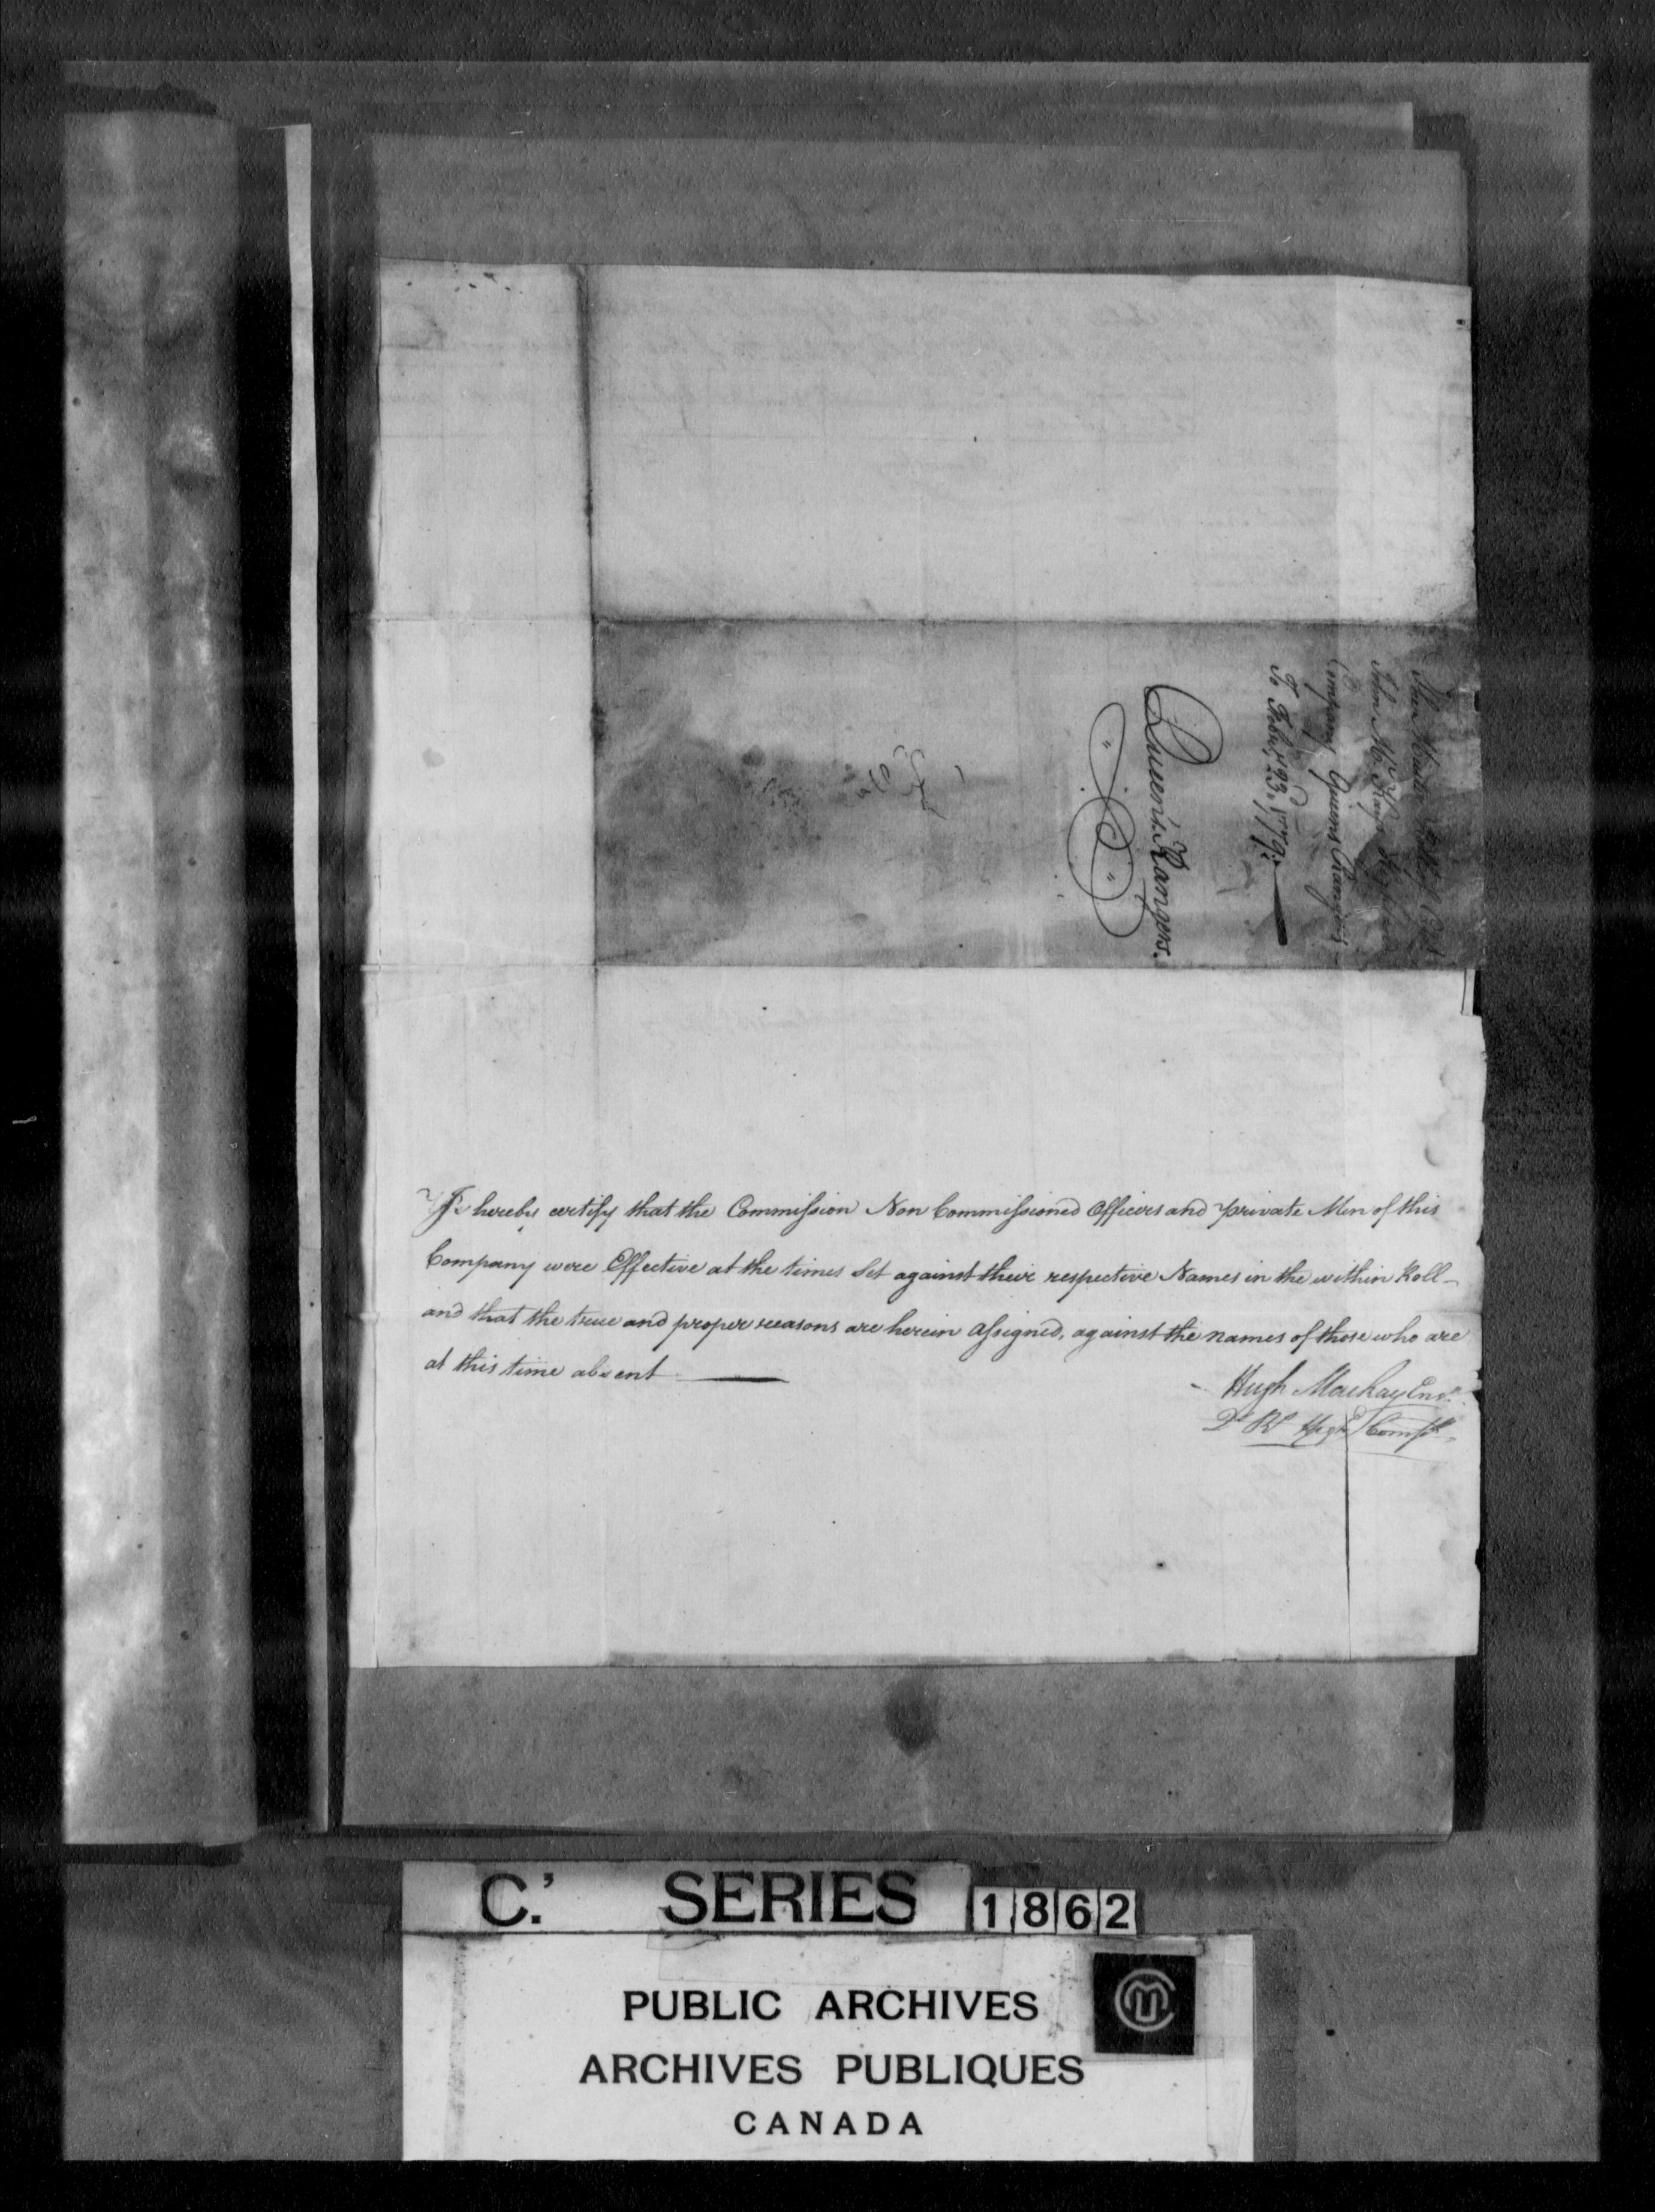 John McKay's
Company Queens Rangers
To Feby 23, 1779.
Queen's Rangers.
I hereby certify that the Commission Non Commissioned Officers and private Men of this
Company were Effective at the times Set against their respective Names in the within Roll
and that the true and proper reasons are herein assigned, against the names of those who are
at this time absent
Hugh Mackay Ensn
C.' SERIES 1862
PUBLIC ARCHIVES
ARCHIVES PUBLIQUES
CANADA